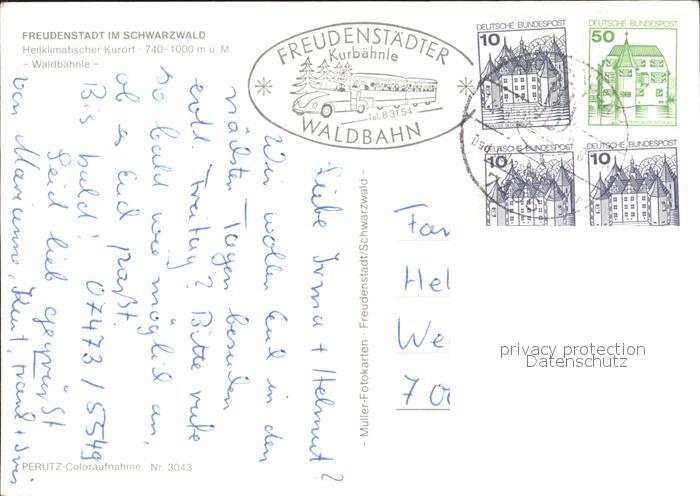 FREUDENSTADT IM SCHWARZWALD
Heilklimatischer Kurort · 740–1000 m ü. M.
– Waldbähnle –
FREUDENSTÄDTER
Kurbähnle
Tel. 83154
WALDBAHN
DEUTSCHE BUNDESPOST
10
DEUTSCHE BUNDESPOST
50
DEUTSCHE BUNDESPOST
10
DEUTSCHE BUNDESPOST
10
Liebe Irma + Helmut!
Wir wollen Euch in den
nächsten Tagen besuchen
evtl. Freitag? Bitte rufe
so bald wie möglich an,
ob es Euch paßt.
Bis bald! 07473 / 5549
Seid lieb gegrüßt
von Marianne, Kurt,
– Müller-Fotokarten · Freudenstadt/Schwarzwald –
Fam
Hel
We
7 00
privacy protection
Datenschutz
PERUTZ-Coloraufnahme Nr. 3043